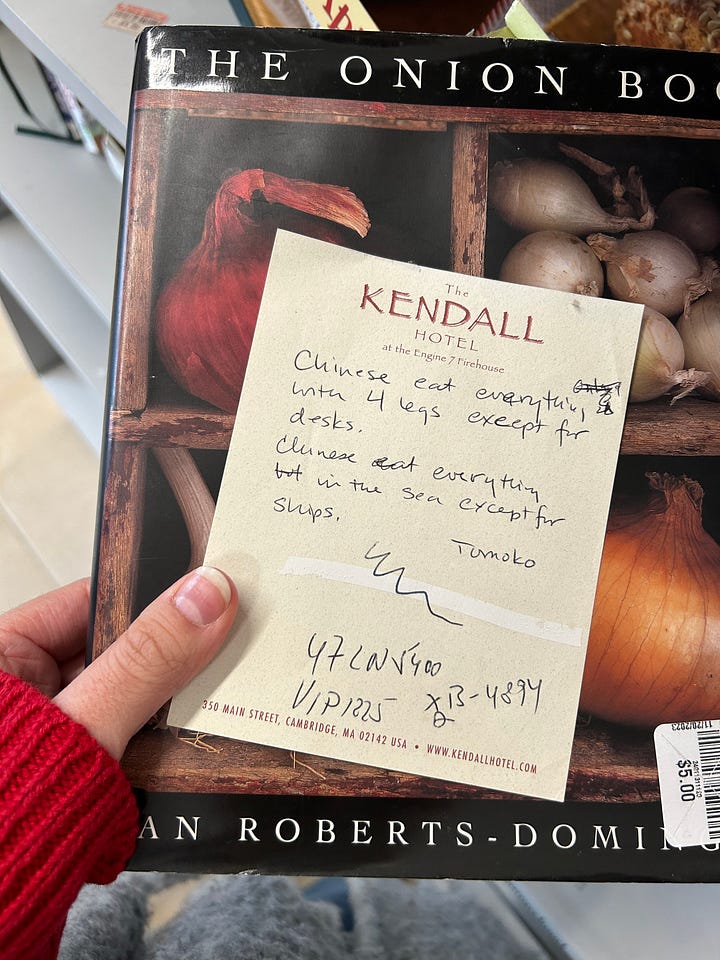 THE ONION BOO
The
KENDALL
HOTEL
at the Engine 7 Firehouse
Chinese eat everything
with 4 legs except for
desks.
Chinese eat everything
but in the sea except for
ships.
Tomoko
47LNV400
VIP1225 XB-4894
350 MAIN STREET, CAMBRIDGE, MA 02142 USA • WWW.KENDALLHOTEL.COM
11/20/2023
$5.00
AN ROBERTS-DOMING